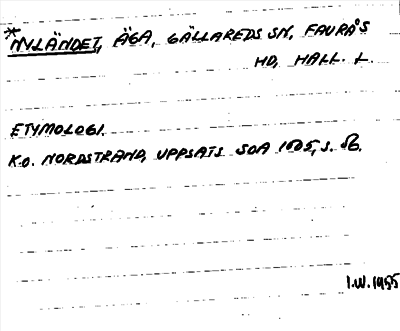 *NYLÄNDET, ÄGA, GÄLLAREDS SN, FAURÅS
HD, HALL. L.
ETYMOLOGI.
K.O. NORDSTRAND, UPPSATS SOA 1505, S.
I.W. 1955